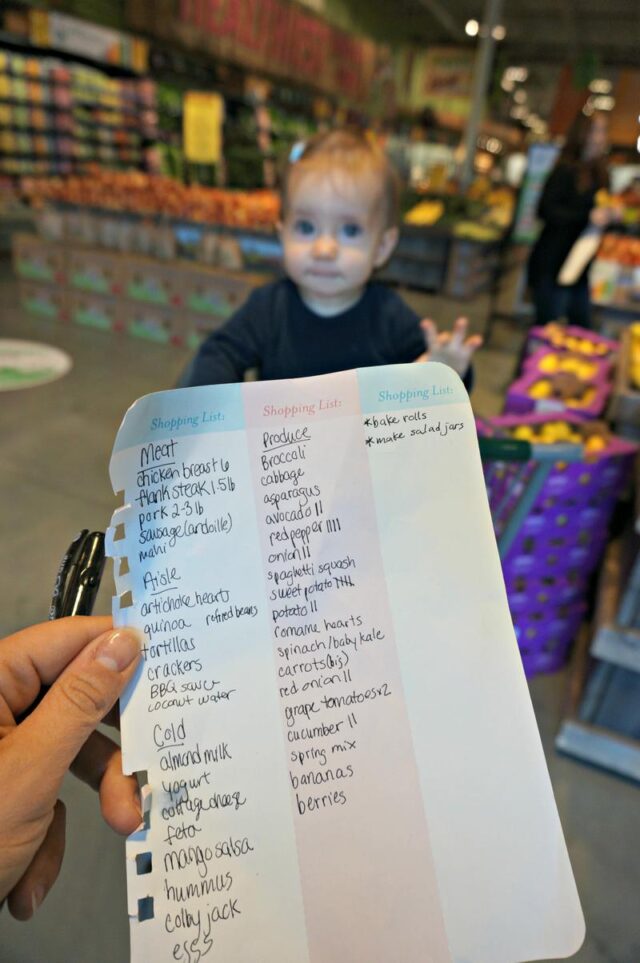 Shopping List:
Meat
chicken breast 6
flank steak 1.5lb
pork 2-3 lb
sausage (andoille)
mahi
Aisle
artichoke hearts
quinoa refried beans
tortillas
crackers
BBQ sauce
coconut water
Cold
almond milk
yogurt
cottage cheese
feta
mango salsa
hummus
colby jack
eggs
Shopping List:
Produce
Broccoli
cabbage
asparagus
avocado II
red pepper IIII
onion II
spaghetti squash
sweet potato
potato II
romaine hearts
spinach/baby kale
carrots (big)
red onion II
grape tomatoes x2
cucumber II
spring mix
bananas
berries
Shopping List:
*bake rolls
*make salad jars